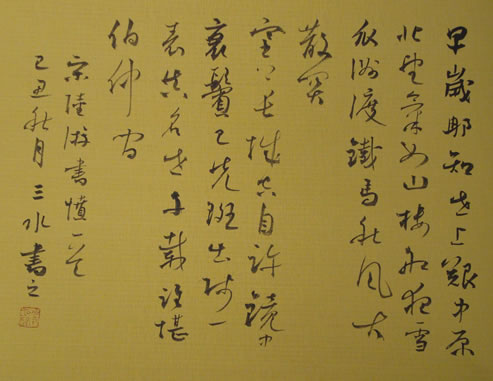 早歲那知世上艱中原
北望氣如山樓船夜雪
瓜洲渡鐵馬秋風大
散關
塞上長城空自許鏡中
衰鬢已先斑出師一
表真名世千載誰堪
伯仲間
宋陸游書憤一首
己丑秋月三水書之